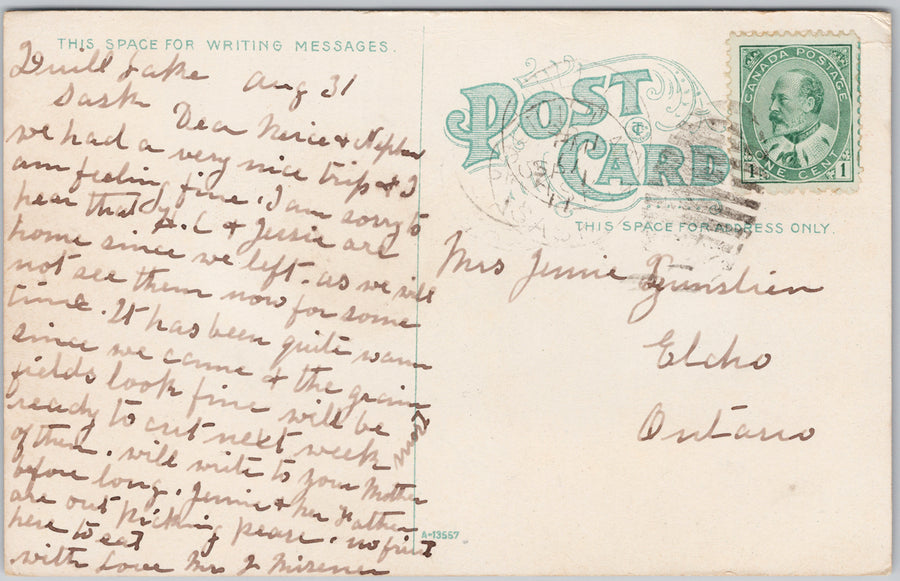 THIS SPACE FOR WRITING MESSAGES.
Quill Lake Aug 31
Sask
Dear Niece & Nephew
we had a very nice trip & I
am feeling fine. I am sorry to
hear that A.C & Jessie are
home since we left. as we will
not see them now for some
time. It has been quite warm
since we came & the grain
fields look fine will be
ready to cut next week most
of them. will write to your Mother
before long. Jennie & her Father
are out picking pease. no fruit
here to eat
with Love Mrs J Misener
POST CARD
CANADA POSTAGE
1 ONE CENT 1
THIS SPACE FOR ADDRESS ONLY.
Mrs Jennie
Elcho
Ontario
A-13557